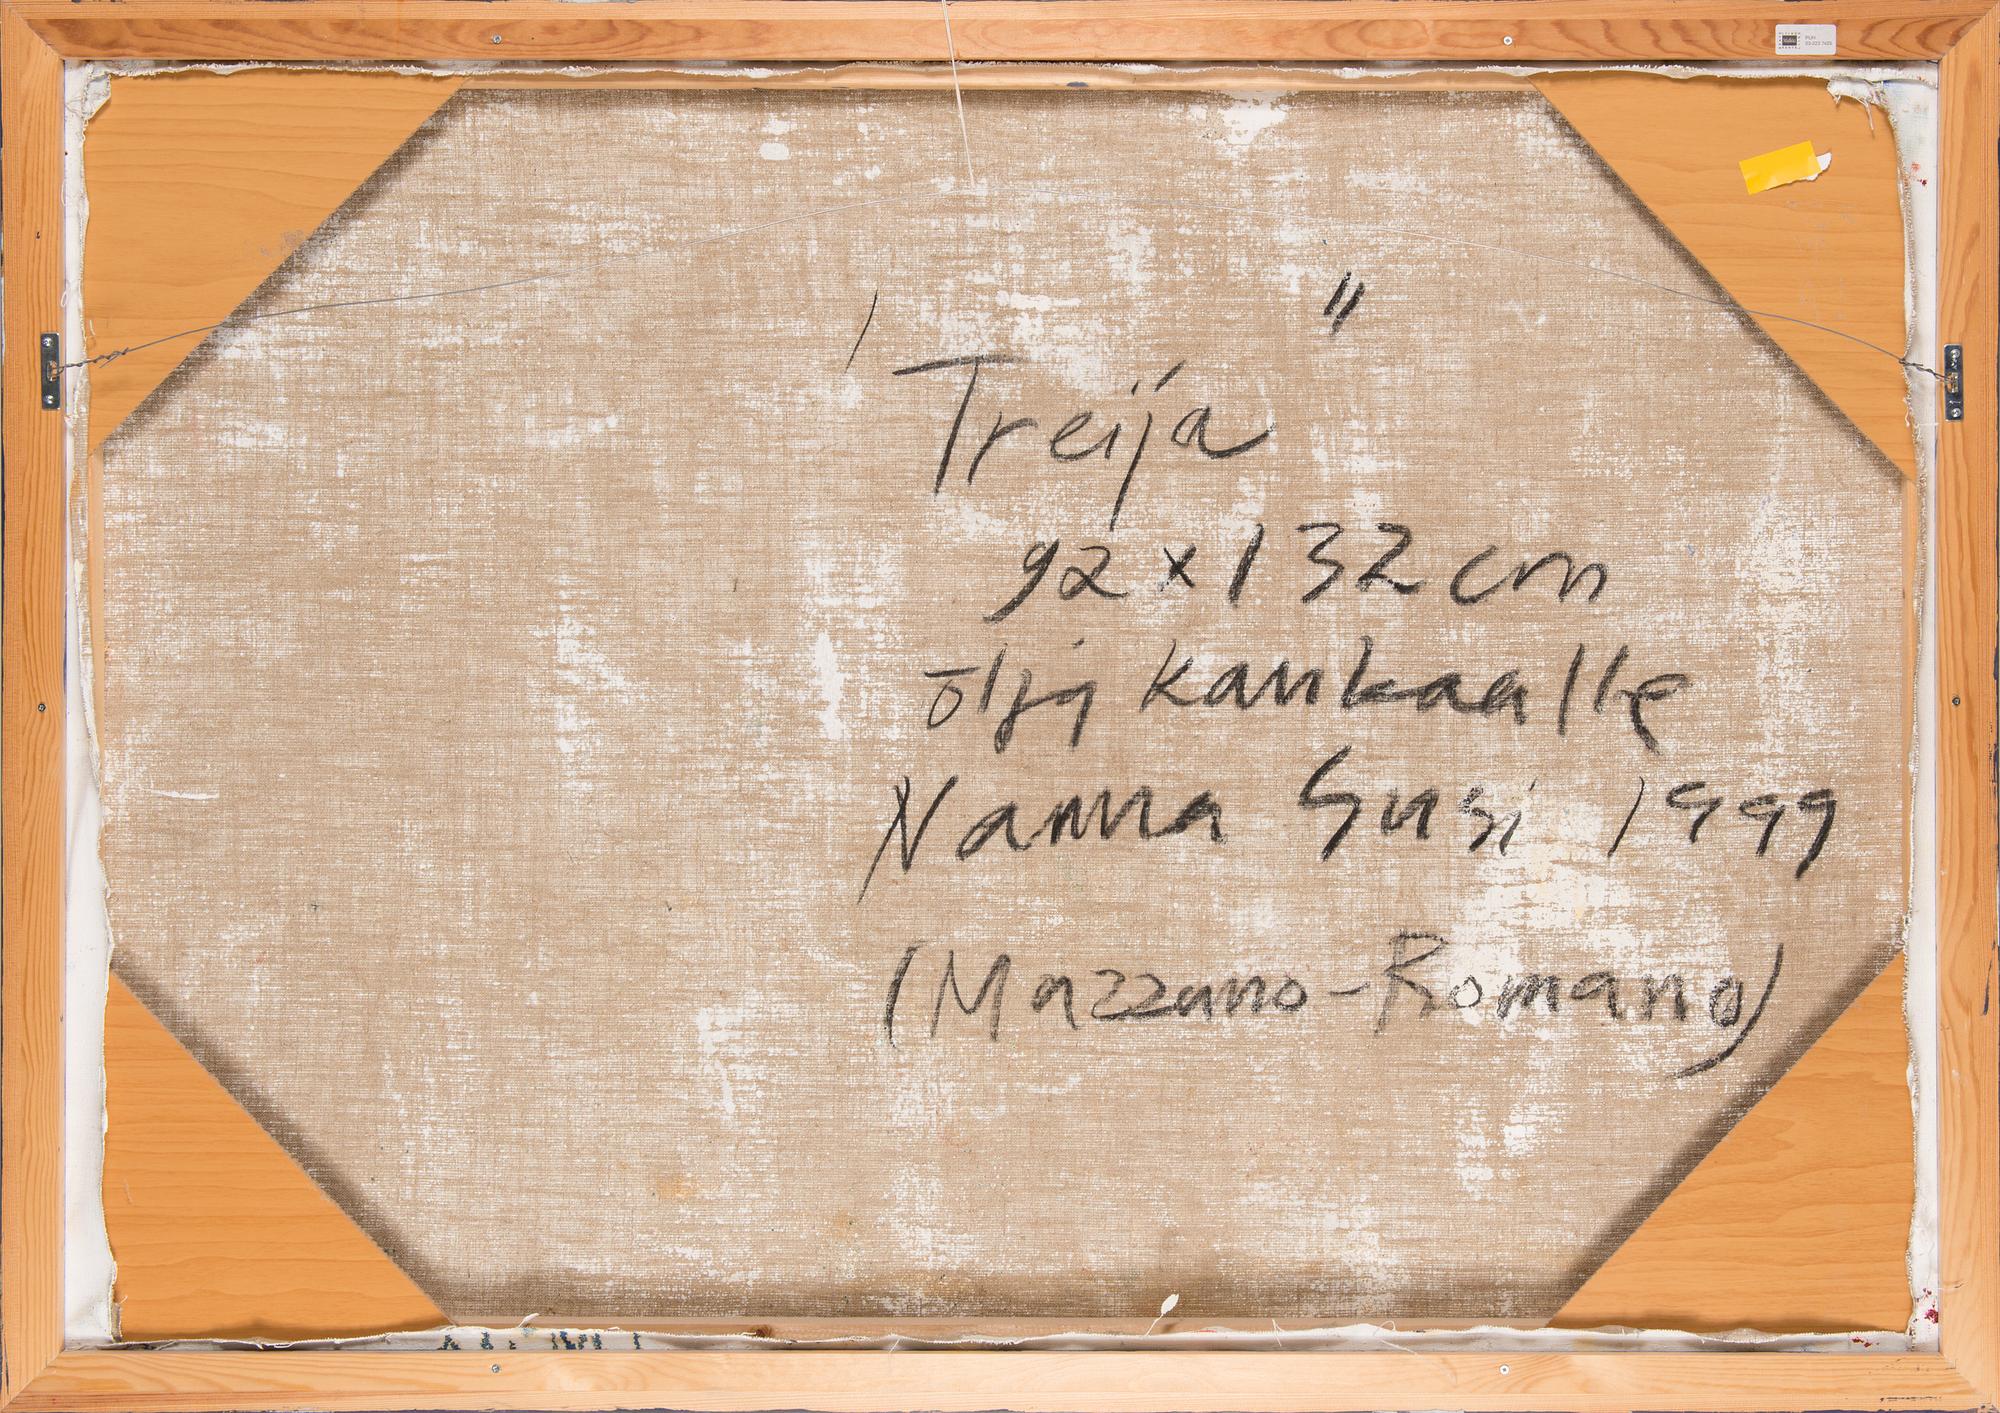 "Treija"
92 x 132 cm
öljy kankaalle
Nanna Susi 1999
(Mazzano-Romano)